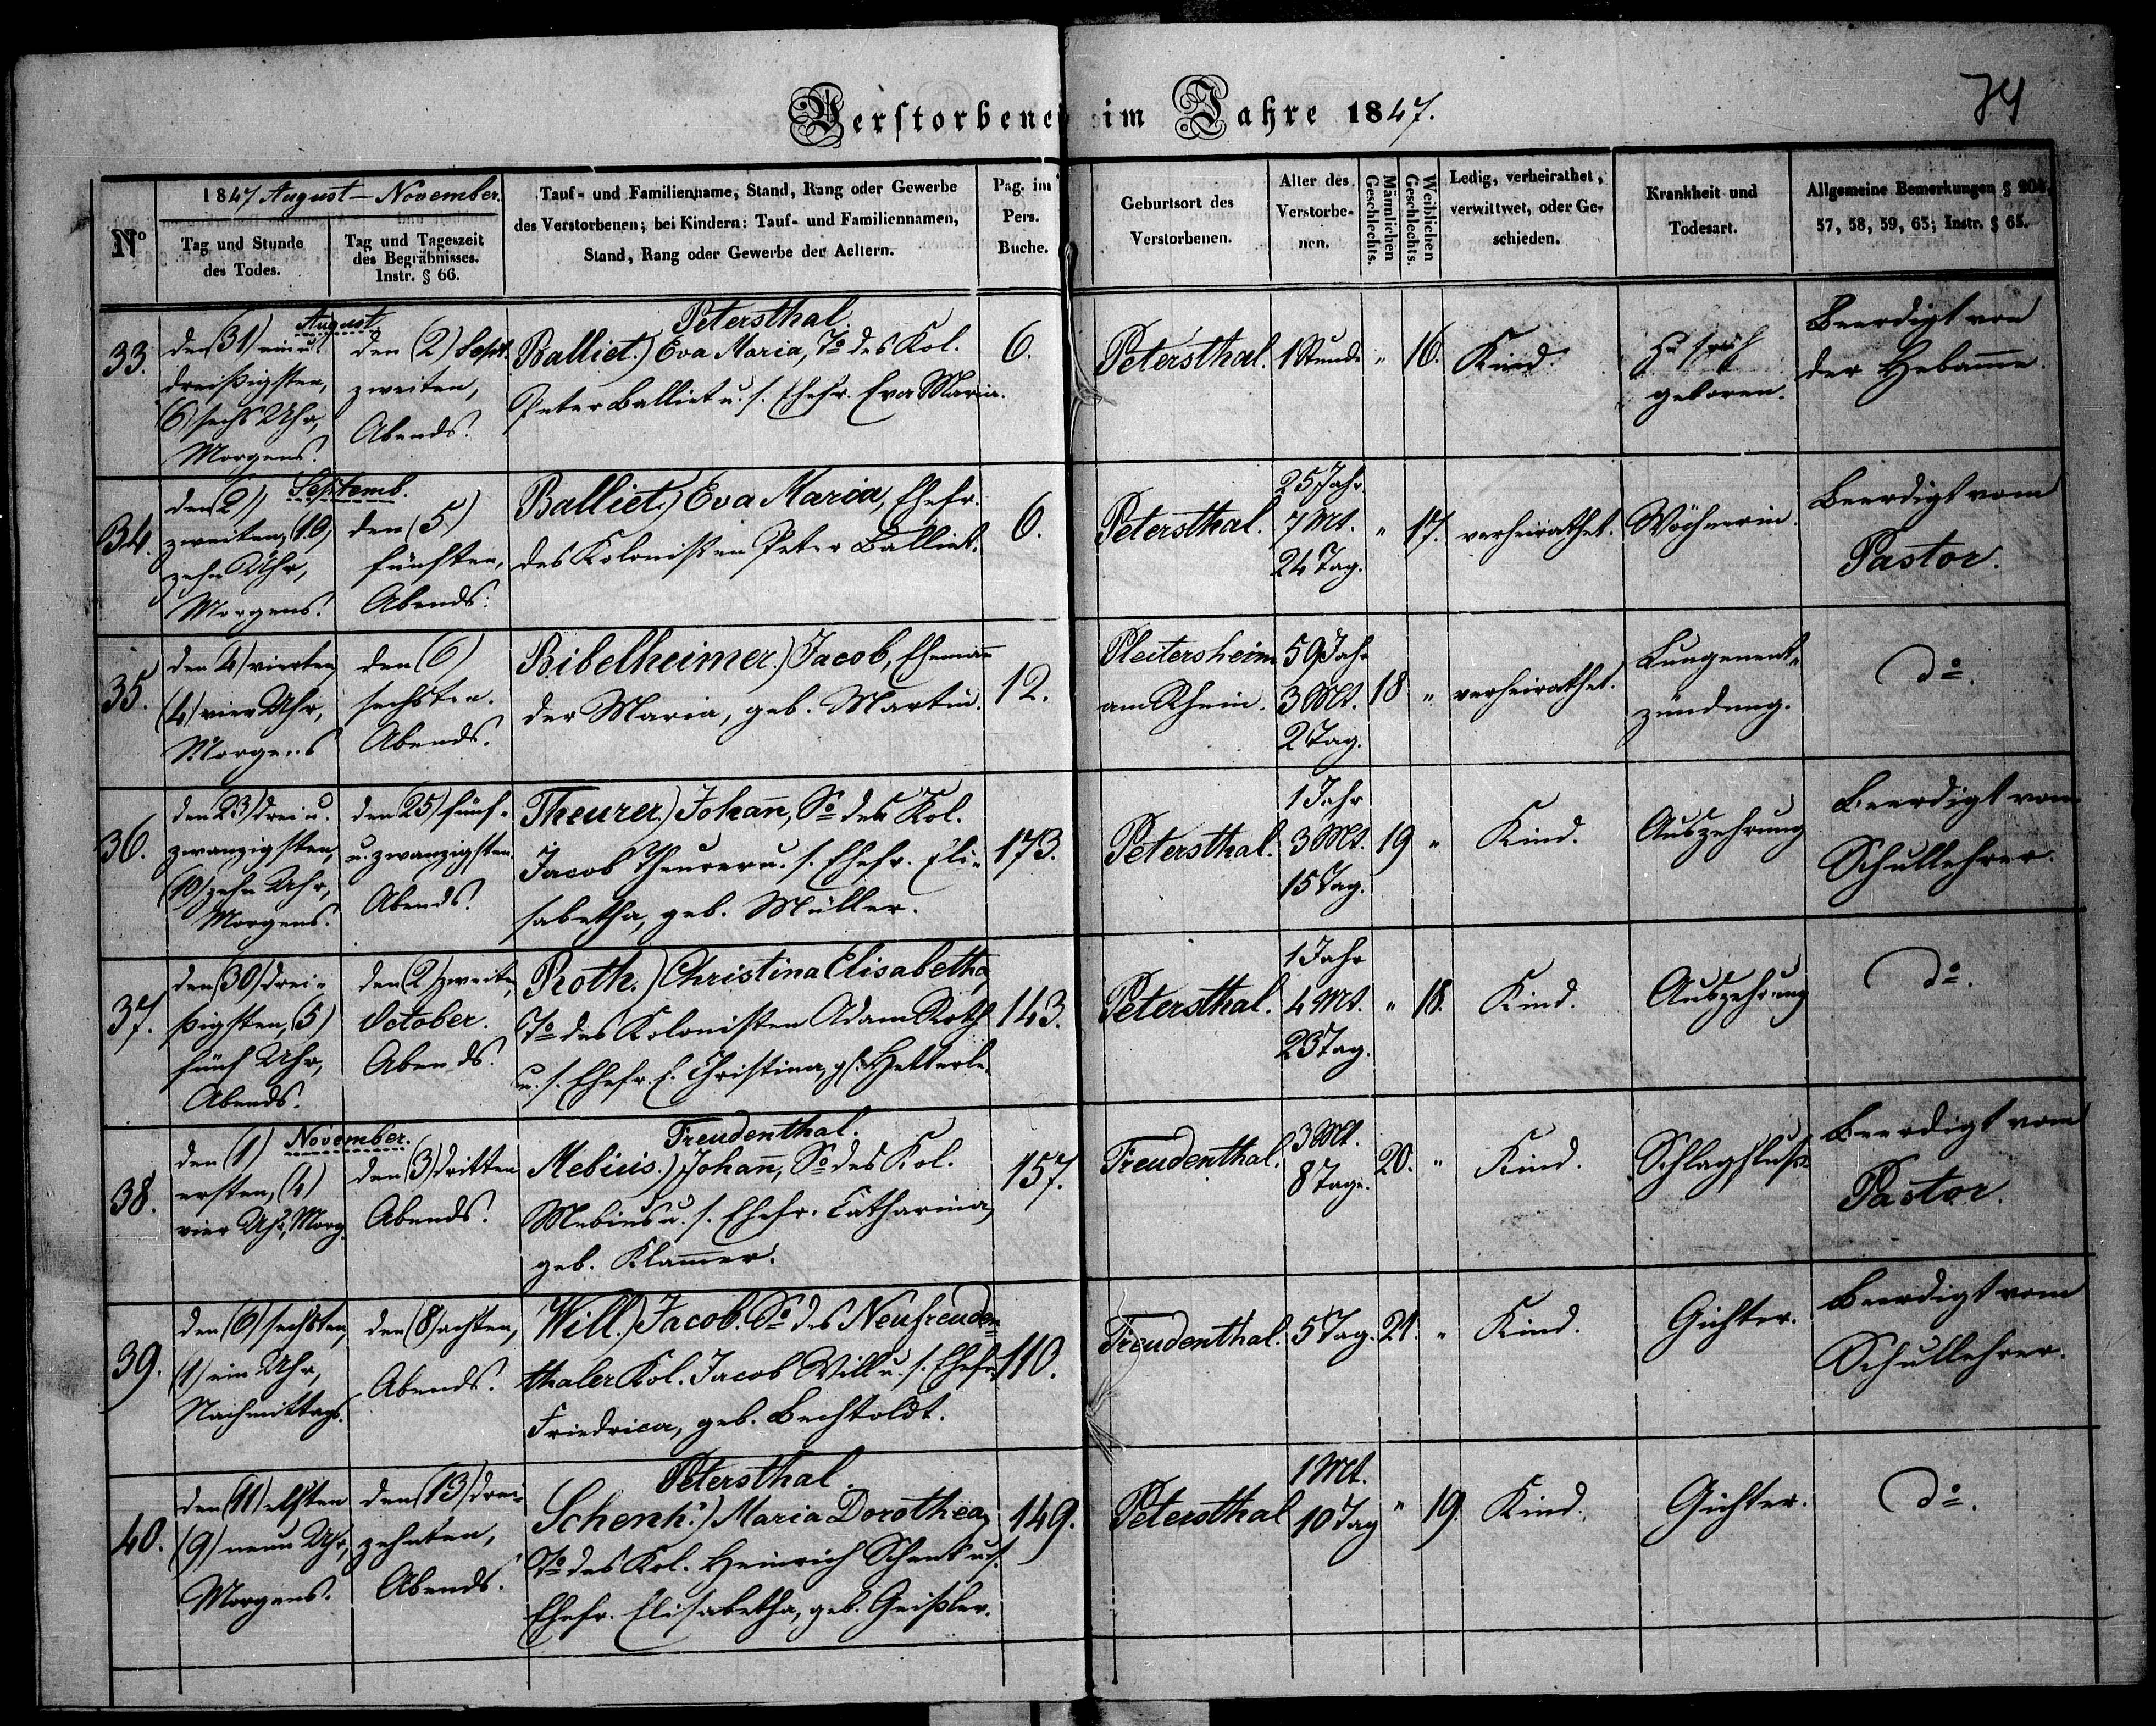 Verstorbene im Jahre 1847.
74
No
1847 August – November.
Tag und Stunde
des Todes.
Tag und Tageszeit
des Begräbnisses.
Instr. § 66.
Tauf- und Familienname, Stand, Rang oder Gewerbe
des Verstorbenen; bei Kindern: Tauf- und Familiennamen,
Stand, Rang oder Gewerbe der Aeltern.
Pag. im
Pers.
Buche.
Geburtsort des
Verstorbenen.
Alter des
Verstorbe-
nen.
Männlichen
Geschlechts.
Weiblichen
Geschlechts.
Ledig, verheirathet,
verwittwet, oder Ge-
schieden.
Krankheit und
Todesart.
Allgemeine Bemerkungen § 204,
57, 58, 59, 63; Instr. § 65.
33.
August
den (31) ein u.
dreißigsten,
(6) sechs Uhr,
Morgens.
den (2) Sept.
zweiten,
Abends.
Petersthal
Balliet.) Eva Maria, To des Kol.
Peter Balliet u. s. Ehefr. Eva Maria.
6.
Petersthal.
1 Stunde
"
16.
Kind.
Zu früh
geboren.
Beerdigt von
der Hebam̄e.
34.
Septemb.
den (2)
zweiten, (10)
zehn Uhr,
Morgens.
den (5)
fünften,
Abends.
Balliet.) Eva Maria, Ehefr.
des Kolonisten Peter Balliet.
6.
Petersthal.
25 Jahr
7 Mt.
24 Tag.
"
17.
verheirathet.
Wöchnerin.
Beerdigt vom
Pastor.
35.
den (4) vierten,
(4) vier Uhr,
Morgens
den (6)
sechsten.
Abends.
Bibelheimer.) Jacob, Ehemann
der Maria, geb. Martin.
12.
Pleitersheim
am Rhein.
59 Jahr
3 Mt.
2 Tag.
18
"
verheirathet.
Lungenent-
zündung.
do.
36.
den (23) drei u.
zwanzigsten,
(10) zehn Uhr,
Morgens.
den (25) fünf-
u. zwanzigsten.
Abends.
Theurer.) Johan̄, So des Kol.
Jacob Theurer u. s. Ehefr. Eli-
sabetha, geb. Müller.
173.
Petersthal.
1 Jahr
3 Mt.
15 Tag.
19
"
Kind.
Auszehrung
Beerdigt vom
Schullehrer.
37.
den (30) drei-
ßigsten, (5)
fünf Uhr,
Abends.
den (2) zweiten
October.
Abends.
Roth.) Christina Elisabetha,
To des Kolonisten Adam Roth
u. s. Ehefr. E. Christina, geb. Hetterle.
143.
Petersthal.
1 Jahr
4 Mt.
23 Tag.
"
18.
Kind.
Auszehrung
do.
38.
November.
den (1)
ersten, (4)
vier Uhr, Morg.
den (3) dritten
Abends.
Freudenthal.
Mebius.) Johan̄, So des Kol.
Mebius u. s. Ehefr. Catharina,
geb. Klam̄er.
157.
Freudenthal.
3 Mt.
8 Tage.
20.
"
Kind.
Schlagfluß.
Beerdigt vom
Pastor.
39.
den (6) sechsten,
(1) ein Uhr,
Nachmittags.
den (8) achten,
Abends.
Will.) Jacob. So des Neufreuden-
thaler Kol. Jacob Will u. s. Ehefr.
Friedrica, geb. Bechtoldt.
110.
Freudenthal.
5 Tag.
21.
"
Kind.
Gichter.
Beerdigt vom
Schullehrer.
40.
den (11) elften
(9) neun Uhr,
Morgens.
den (13) drei-
zehnten,
Abends.
Petersthal.
Schenk.) Maria Dorothea,
To des Kol. Heinrich Schenk u. s.
Ehefr. Elisabetha, geb. Geißler.
149.
Petersthal
1 Mt.
10 Tag
"
19.
Kind.
Gichter.
do.